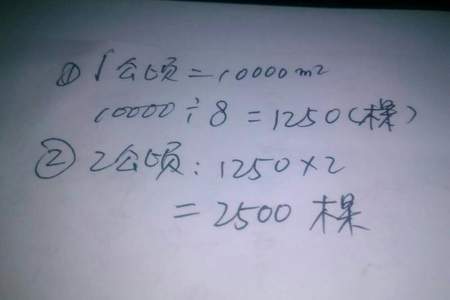 ① 1公顷=10000m2
10000÷8=1250(棵)
② 2公顷:1250×2
=2500 棵